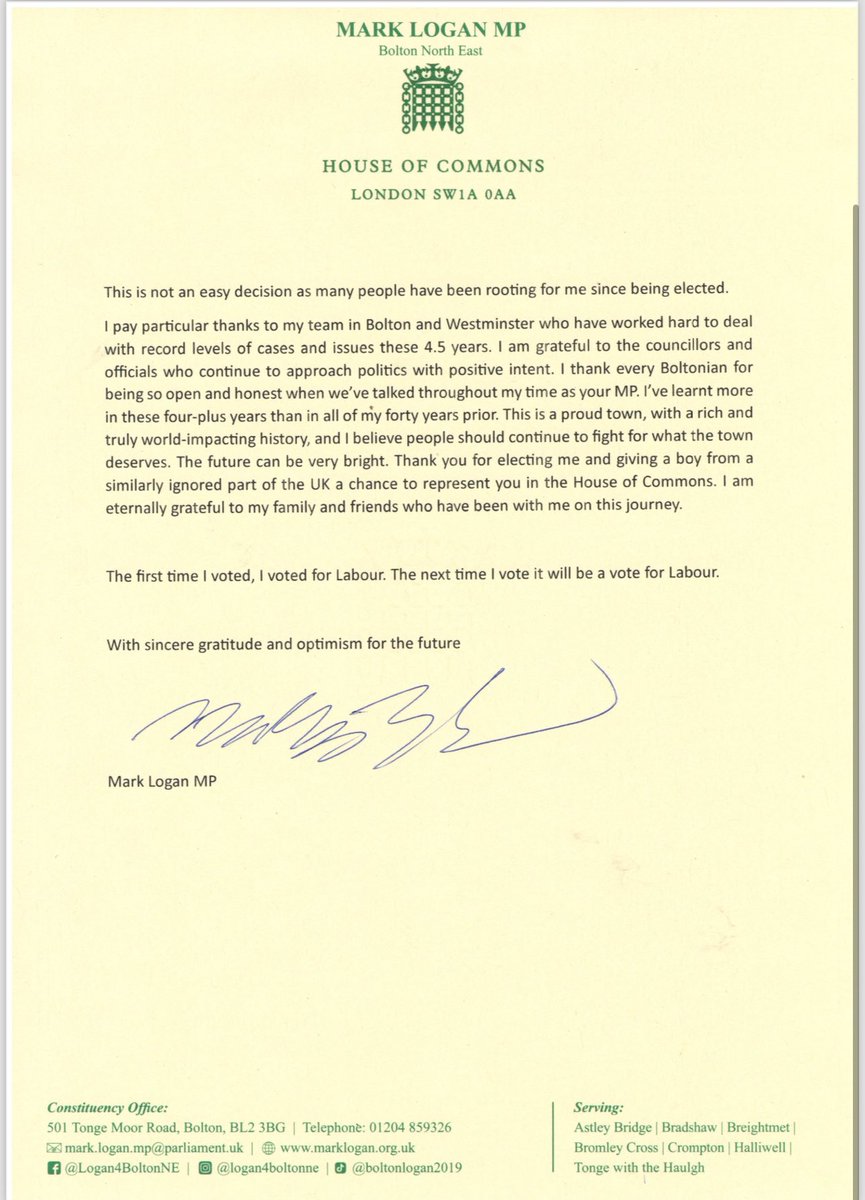 MARK LOGAN MP
Bolton North East
HOUSE OF COMMONS
LONDON SW1A 0AA
This is not an easy decision as many people have been rooting for me since being elected.
I pay particular thanks to my team in Bolton and Westminster who have worked hard to deal
with record levels of cases and issues these 4.5 years. I am grateful to the councillors and
officials who continue to approach politics with positive intent. I thank every Boltonian for
being so open and honest when we've talked throughout my time as your MP. I've learnt more
in these four-plus years than in all of my forty years prior. This is a proud town, with a rich and
truly world-impacting history, and I believe people should continue to fight for what the town
deserves. The future can be very bright. Thank you for electing me and giving a boy from a
similarly ignored part of the UK a chance to represent you in the House of Commons. I am
eternally grateful to my family and friends who have been with me on this journey.
The first time I voted, I voted for Labour. The next time I vote it will be a vote for Labour.
With sincere gratitude and optimism for the future
Mark Logan MP
Constituency Office:
501 Tonge Moor Road, Bolton, BL2 3BG | Telephone: 01204 859326
mark.logan.mp@parliament.uk | www.marklogan.org.uk
@Logan4BoltonNE | @logan4boltonne | @boltonlogan2019
Serving:
Astley Bridge | Bradshaw | Breightmet |
Bromley Cross | Crompton | Halliwell |
Tonge with the Haulgh